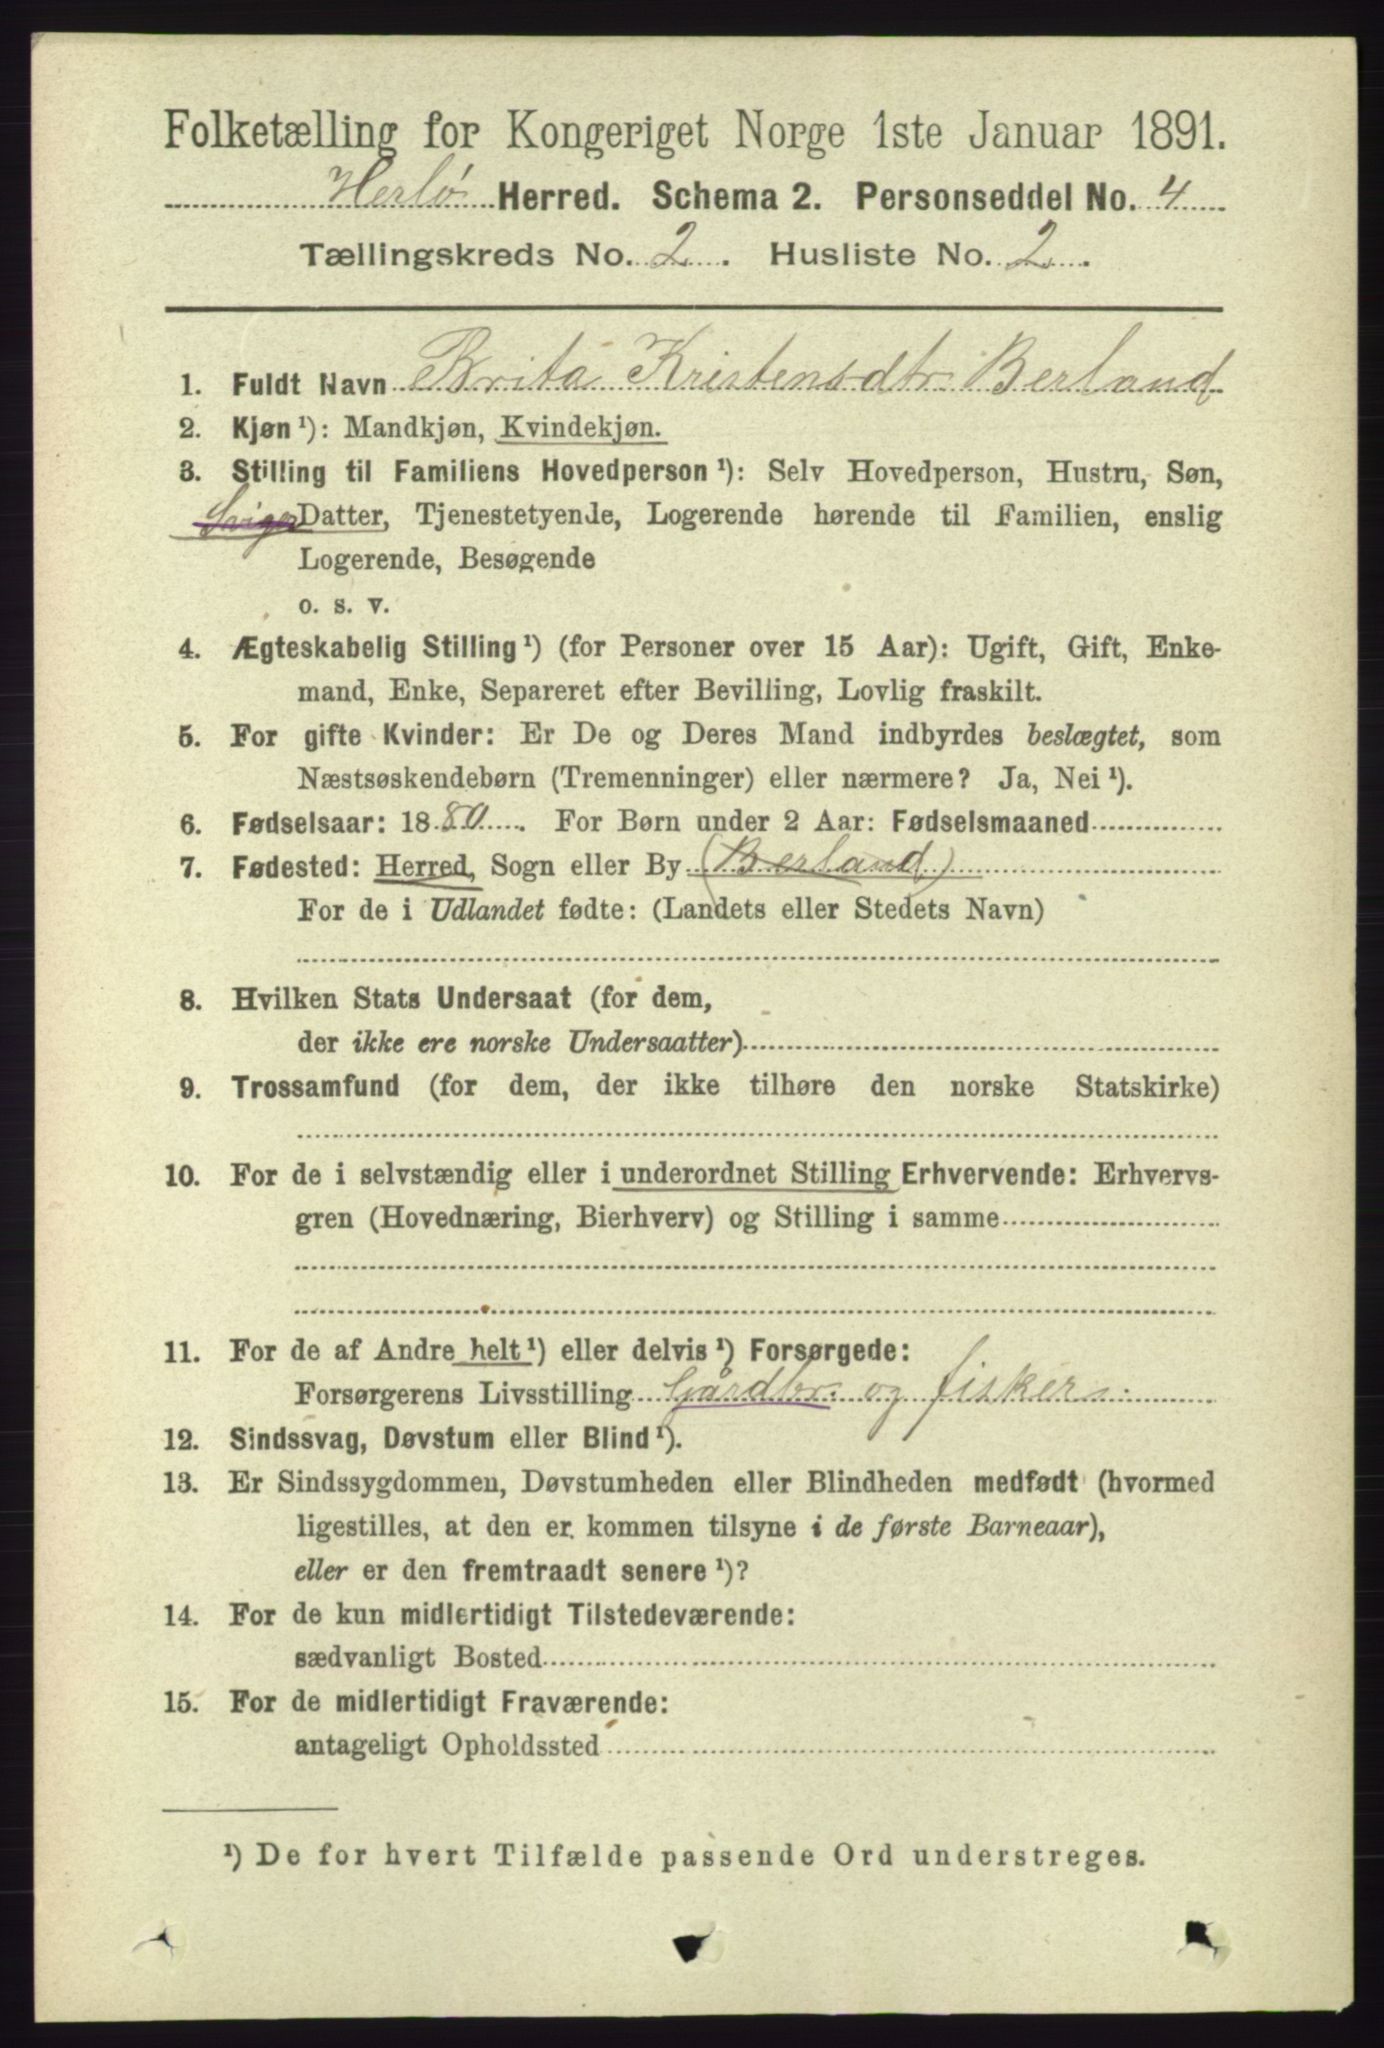 Folketælling for Kongeriget Norge 1ste Januar 1891.
Herlø Herred. Schema 2. Personseddel No. 4
Tællingskreds No. 2. Husliste No. 2.
1. Fuldt Navn Brita Kristensdtr Berland
2. Kjøn ¹): Mandkjøn, Kvindekjøn.
3. Stilling til Familiens Hovedperson ¹): Selv Hovedperson, Hustru, Søn,
Sviger Datter, Tjenestetyende, Logerende hørende til Familien, enslig
Logerende, Besøgende
o. s. v.
4. Ægteskabelig Stilling ¹) (for Personer over 15 Aar): Ugift, Gift, Enke-
mand, Enke, Separeret efter Bevilling, Lovlig fraskilt.
5. For gifte Kvinder: Er De og Deres Mand indbyrdes beslægtet, som
Næstsøskendebørn (Tremenninger) eller nærmere? Ja, Nei ¹).
6. Fødselsaar: 1880. For Børn under 2 Aar: Fødselsmaaned
7. Fødested: Herred, Sogn eller By (Berland)
For de i Udlandet fødte: (Landets eller Stedets Navn)
8. Hvilken Stats Undersaat (for dem,
der ikke ere norske Undersaatter)
9. Trossamfund (for dem, der ikke tilhøre den norske Statskirke)
10. For de i selvstændig eller i underordnet Stilling Erhvervende: Erhvervs-
gren (Hovednæring, Bierhverv) og Stilling i samme
11. For de af Andre helt ¹) eller delvis ¹) Forsørgede:
Forsørgerens Livsstilling Gårdbr. og fisker.
12. Sindssvag, Døvstum eller Blind ¹).
13. Er Sindssygdommen, Døvstumheden eller Blindheden medfødt (hvormed
ligestilles, at den er kommen tilsyne i de første Barneaar),
eller er den fremtraadt senere ¹)?
14. For de kun midlertidigt Tilstedeværende:
sædvanligt Bosted
15. For de midlertidigt Fraværende:
antageligt Opholdssted
¹) De for hvert Tilfælde passende Ord understreges.